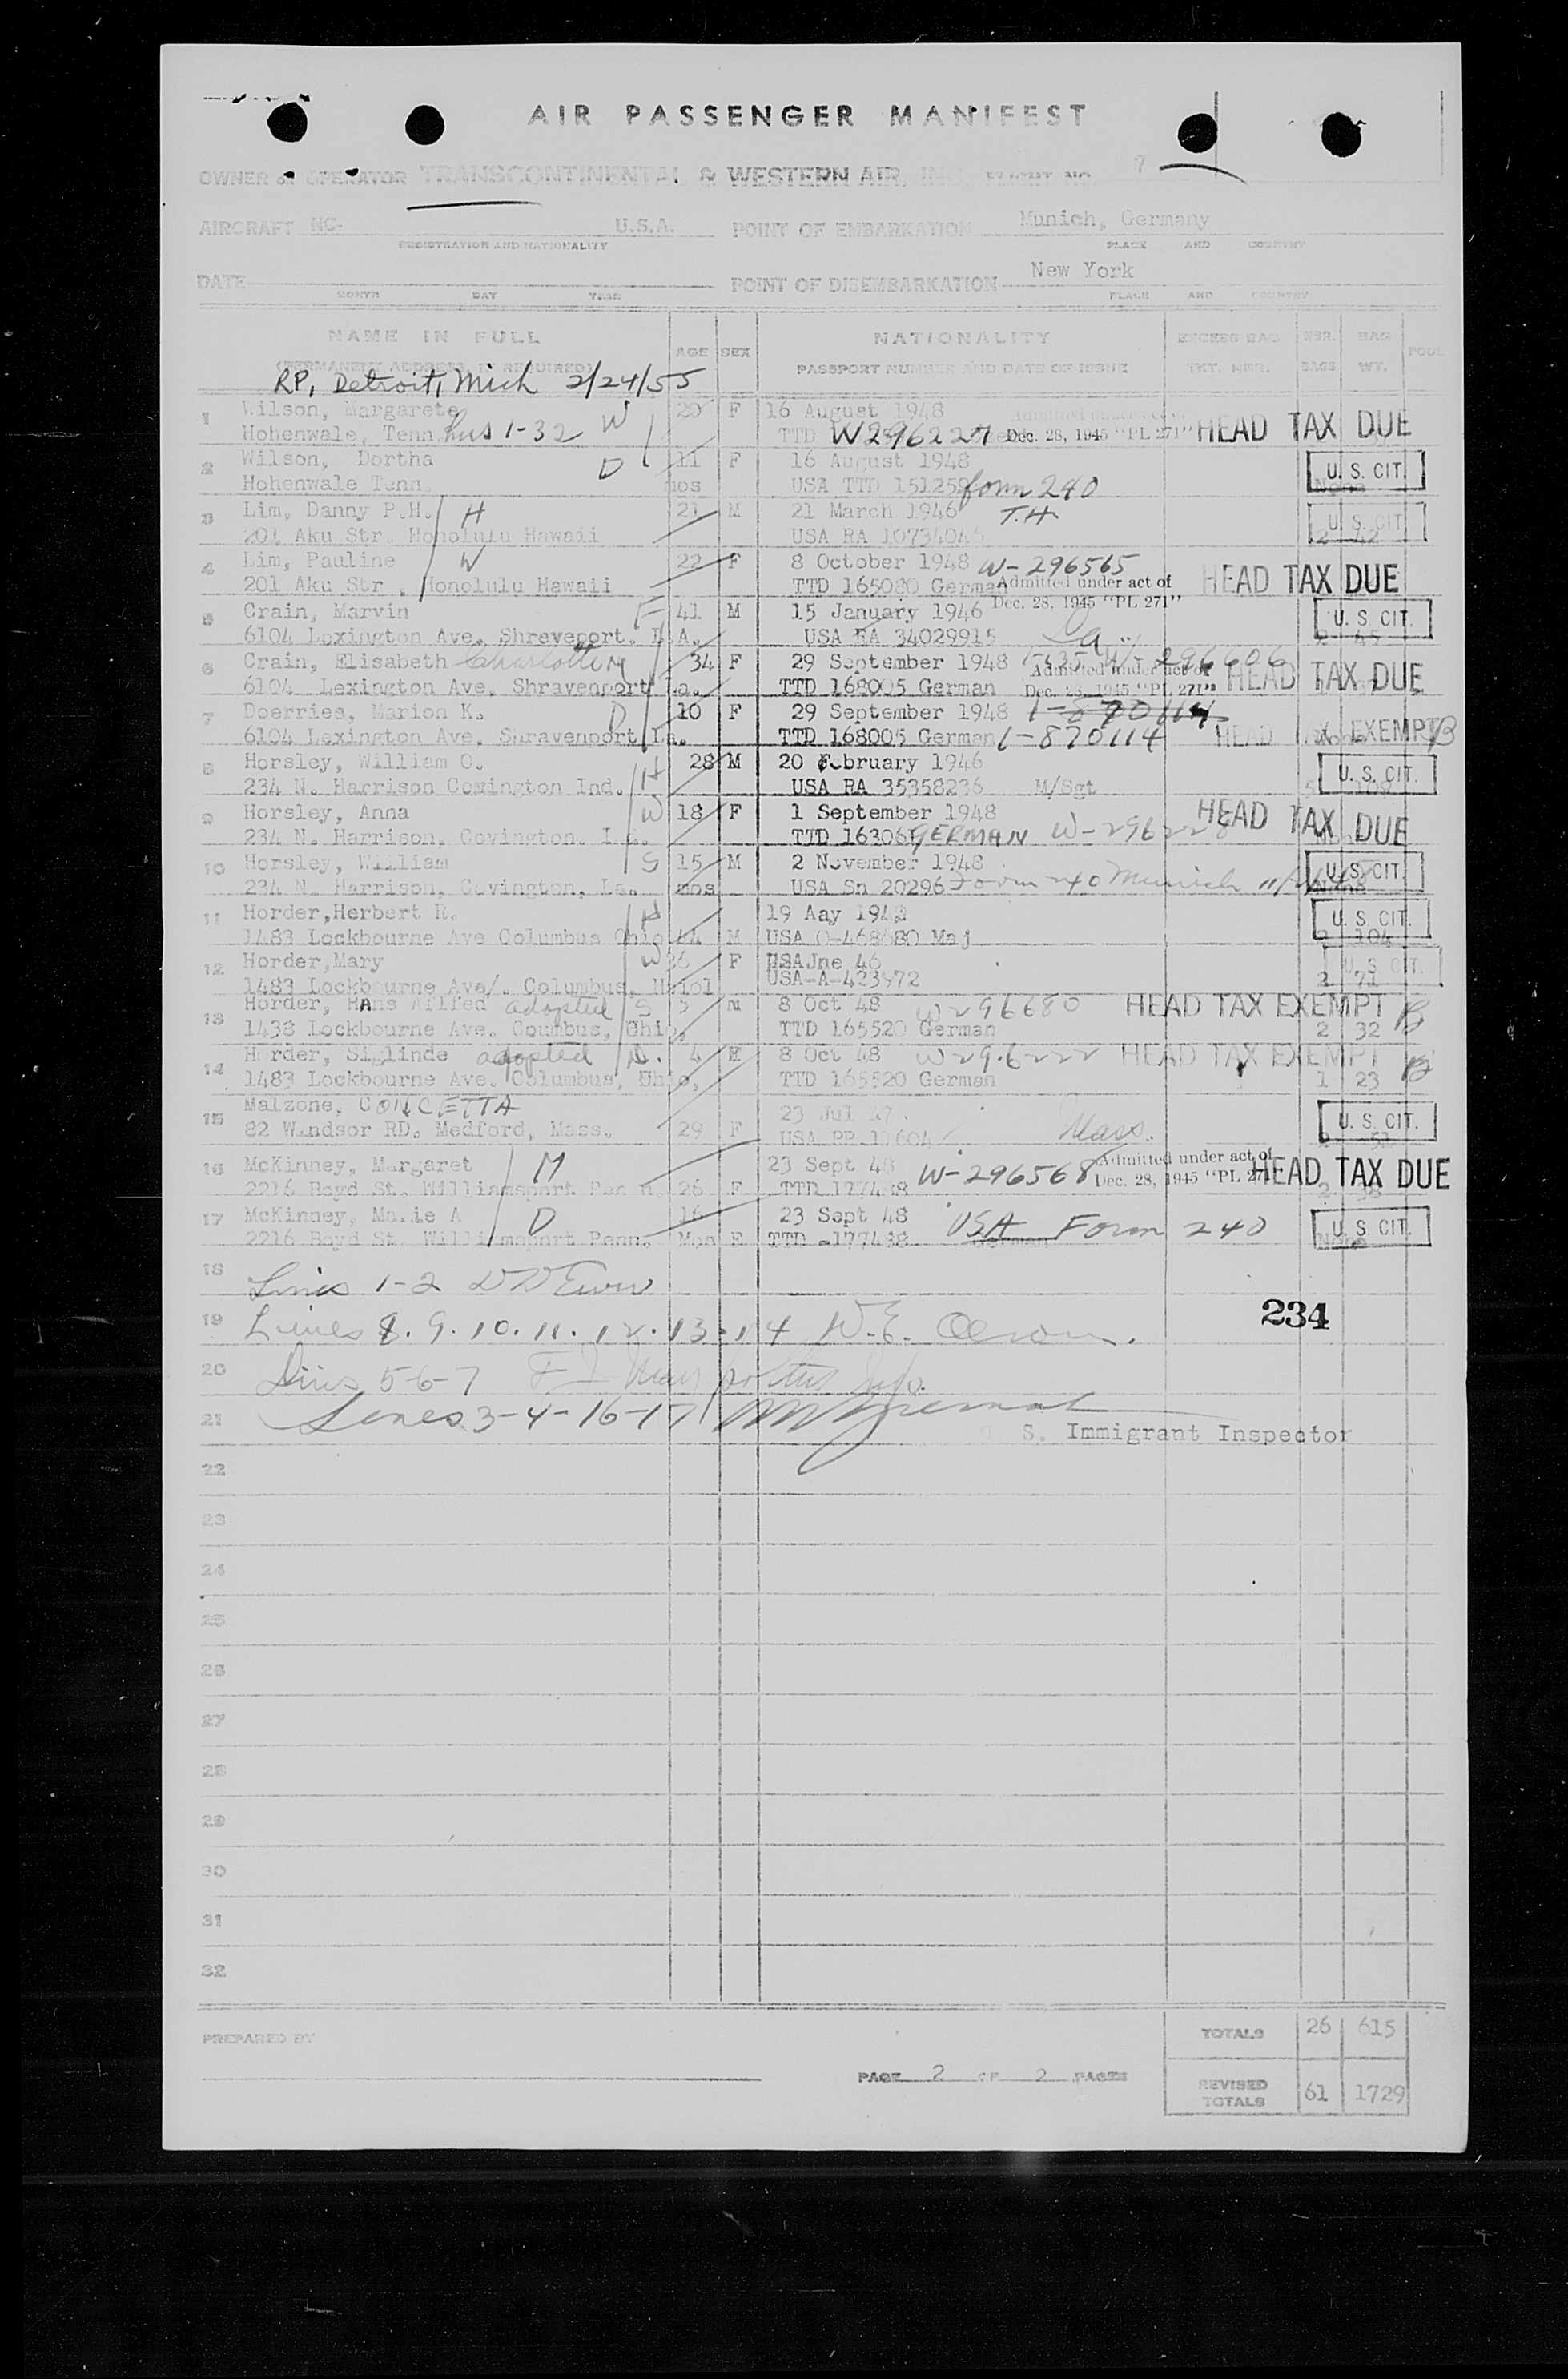 AIR PASSENGER MANIFEST
OWNER or OPERATOR TRANSCONTINENTAL & WESTERN AIR, INC. FLIGHT NO. 7
AIRCRAFT NC- U.S.A. POINT OF EMBARKATION Munich, Germany
REGISTRATION AND NATIONALITY PLACE AND COUNTRY
DATE POINT OF DISEMBARKATION New York
MONTH DAY YEAR PLACE AND COUNTRY
NAME IN FULL AGE SEX NATIONALITY EXCESS BAG NBR. BAG
(PERMANENT ADDRESS IS REQUIRED) PASSPORT NUMBER AND DATE OF ISSUE TKT. NBR. BAGS WT.
RP, Detroit, Mich 2/24/55
1 Wilson, Margarete W 20 F 16 August 1948 HEAD TAX DUE
Hohenwale, Tenn hus 1-32 TTD W296227 Dec. 28, 1945 "PL 271"
2 Wilson, Dortha D 11 F 16 August 1948 U. S. CIT.
Hohenwale Tenn. mos USA TTD 151259 form 240 None
3 Lim, Danny P.H. H 21 M 21 March 1946 T.H. U. S. CIT.
201 Aku Str. Honolulu Hawaii USA RA 10734045 2 42
4 Lim, Pauline W 22 F 8 October 1948 W-296565 HEAD TAX DUE
201 Aku Str. Honolulu Hawaii TTD 165080 German Admitted under act of Dec. 28, 1945 "PL 271"
5 Crain, Marvin F 41 M 15 January 1946 U. S. CIT.
6104 Lexington Ave. Shreveport. LA. USA RA 34029915 La 2 45
6 Crain, Elisabeth Charlotte M 34 F 29 September 1948 296606 HEAD TAX DUE
6104 Lexington Ave. Shravenport La. TTD 168005 German Admitted under act of Dec. 28, 1945 "PL 271"
7 Doerries, Marion K. D 10 F 29 September 1948 1-870114
6104 Lexington Ave. Shravenport La. TTD 168005 German 1-870114 HEAD TAX EXEMPT B
8 Horsley, William O. H 28 M 20 February 1946 U. S. CIT.
234 N. Harrison Comington Ind. USA RA 35358236 M/Sgt 5 109
9 Horsley, Anna W 18 F 1 September 1948 HEAD TAX DUE
234 N. Harrison, Covington. La. TTD 163061 GERMAN W-296228
10 Horsley, William S 15 M 2 November 1948 U. S. CIT.
234 N. Harrison, Covington, La. mos USA Sn 20296 Form 240 Munich
11 Horder,Herbert R. H 19 Aay 1942 U. S. CIT.
1483 Lockbourne Ave Columbus Ohio 44 M USA O-468680 Maj 2 104
12 Horder,Mary W 36 F USAJne 46 U. S. CIT.
1483 Lockbourne Ave/. Columbus, USA-A-423972 2 71
13 Horder, Hans Wilfed adopted S 5 M 8 Oct 48 W296680 HEAD TAX EXEMPT B
1438 Lockbourne Ave. Coumbus, Ohio, TTD 165520 German 2 32
14 Horder, Siglinde adopted D. 4 F 8 Oct 48 W296222 HEAD TAX EXEMPT B
1483 Lockbourne Ave. Columbus, Ohio, TTD 165520 German 1 23
15 Malzone, CONCETTA 23 Jul 47 U. S. CIT.
82 Windsor RD. Medford, Mass. 29 F USA PP 17604 Mass. 51
16 McKinney, Margaret M 23 Sept 48 W-296568 Admitted under act of HEAD TAX DUE
2216 Boyd St. Williamsport Penn 26 F TTD 177488 Dec. 28, 1945 "PL 271"
17 McKinney, Marie A D 16 23 Sept 48 USA Form 240 U. S. CIT.
2216 Boyd St. Williamsport Penn. Mos F TTD -177488 None
18 Lines 1-2
19 Lines 8. 9. 10. 11. 12. 13. 14 W.E. Olson.
234
20 Lines 5-6-7
21 Lines 3-4-16-17
S. Immigrant Inspector
22
23
24
25
26
27
28
29
30
31
32
PREPARED BY
TOTALS 26 615
PAGE 2 OF 2 PAGES
REVISED TOTALS 61 1729